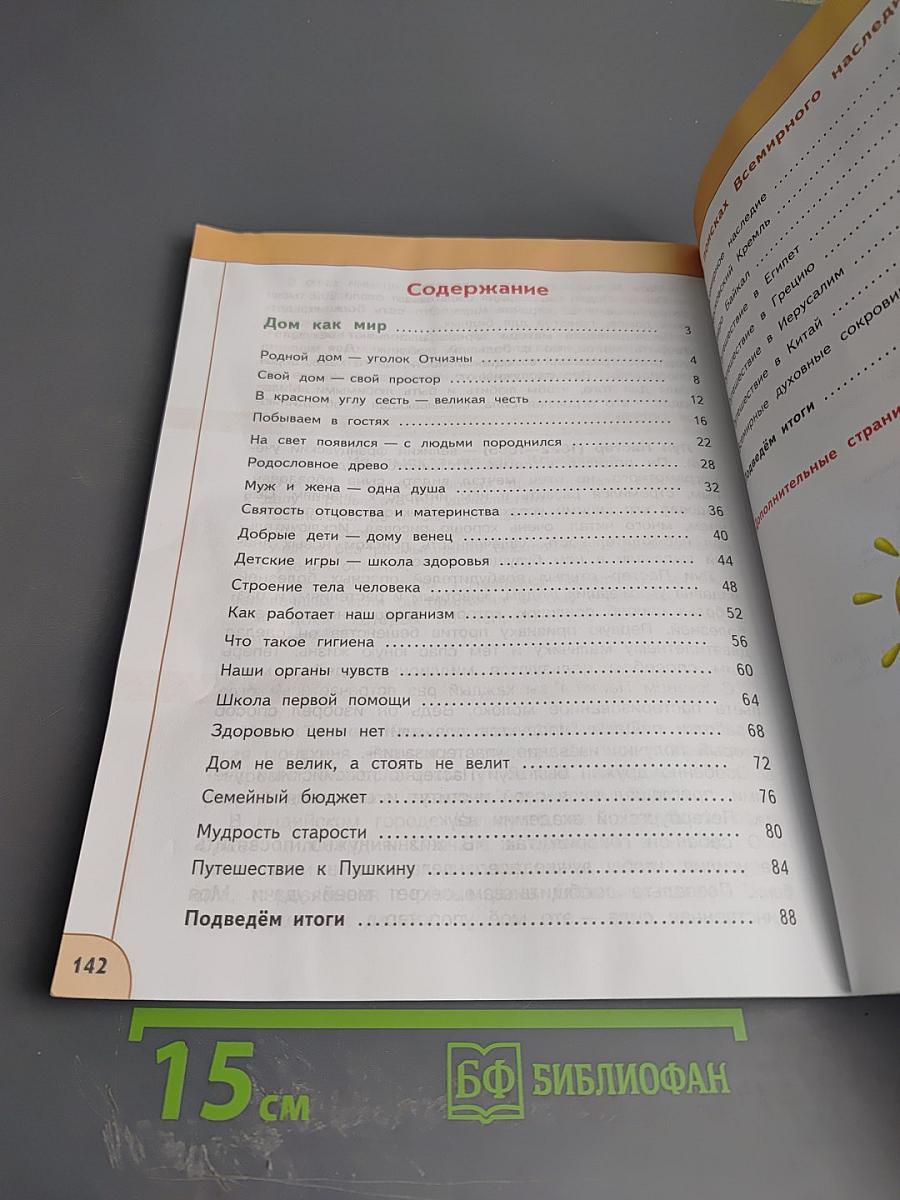 Содержание
Дом как мир ........ 3
Родной дом — уголок Отчизны ........ 4
Свой дом — свой простор ........ 8
В красном углу сесть — великая честь ........ 12
Побываем в гостях ........ 16
На свет появился — с людьми породнился ........ 22
Родословное древо ........ 28
Муж и жена — одна душа ........ 32
Святость отцовства и материнства ........ 36
Добрые дети — дому венец ........ 40
Детские игры — школа здоровья ........ 44
Строение тела человека ........ 48
Как работает наш организм ........ 52
Что такое гигиена ........ 56
Наши органы чувств ........ 60
Школа первой помощи ........ 64
Здоровью цены нет ........ 68
Дом не велик, а стоять не велит ........ 72
Семейный бюджет ........ 76
Мудрость старости ........ 80
Путешествие к Пушкину ........ 84
Подведём итоги ........ 88
142
Всемирного
наследие
Кремль
Байкал
в Египет
в Грецию
в Иерусалим
в Китай
духовные
итоги
15 см
БФ БИБЛИОФАН